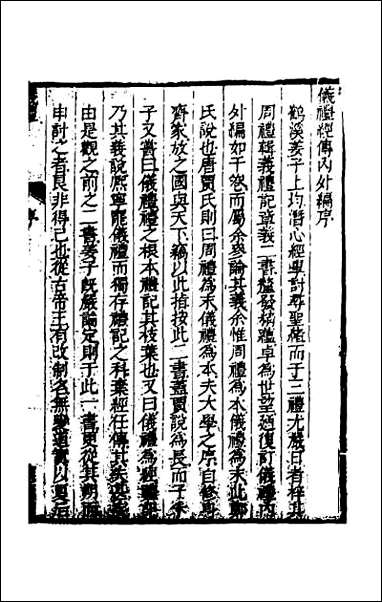 儀禮經傳內外編序
鶴溪姜子上均潛心經學討尋聖緒而于三禮尤歲日者梓其
周禮輯義禮記章義二書釐發精蘊卓為世望適復訂儀禮內
外編如干卷而屬余參論其義余惟周禮為本儀禮為末此鄭
氏說也唐賈氏則曰周禮為末儀禮為本夫大學之序自修身
齊家放之國與天下竊以此指按此二書蓋賈說為長而子朱
子又嘗曰儀禮禮之根本禮記其枝葉也又曰儀禮為經禮記
乃其義說熙寧罷儀禮而獨存禮記之科棄經任傳其失甚矣
由是觀之前之二書姜子既嚴論定則于此一書更從其朔而
申討之者良非得已也從古帝王有改制名無變道實以夏后
序